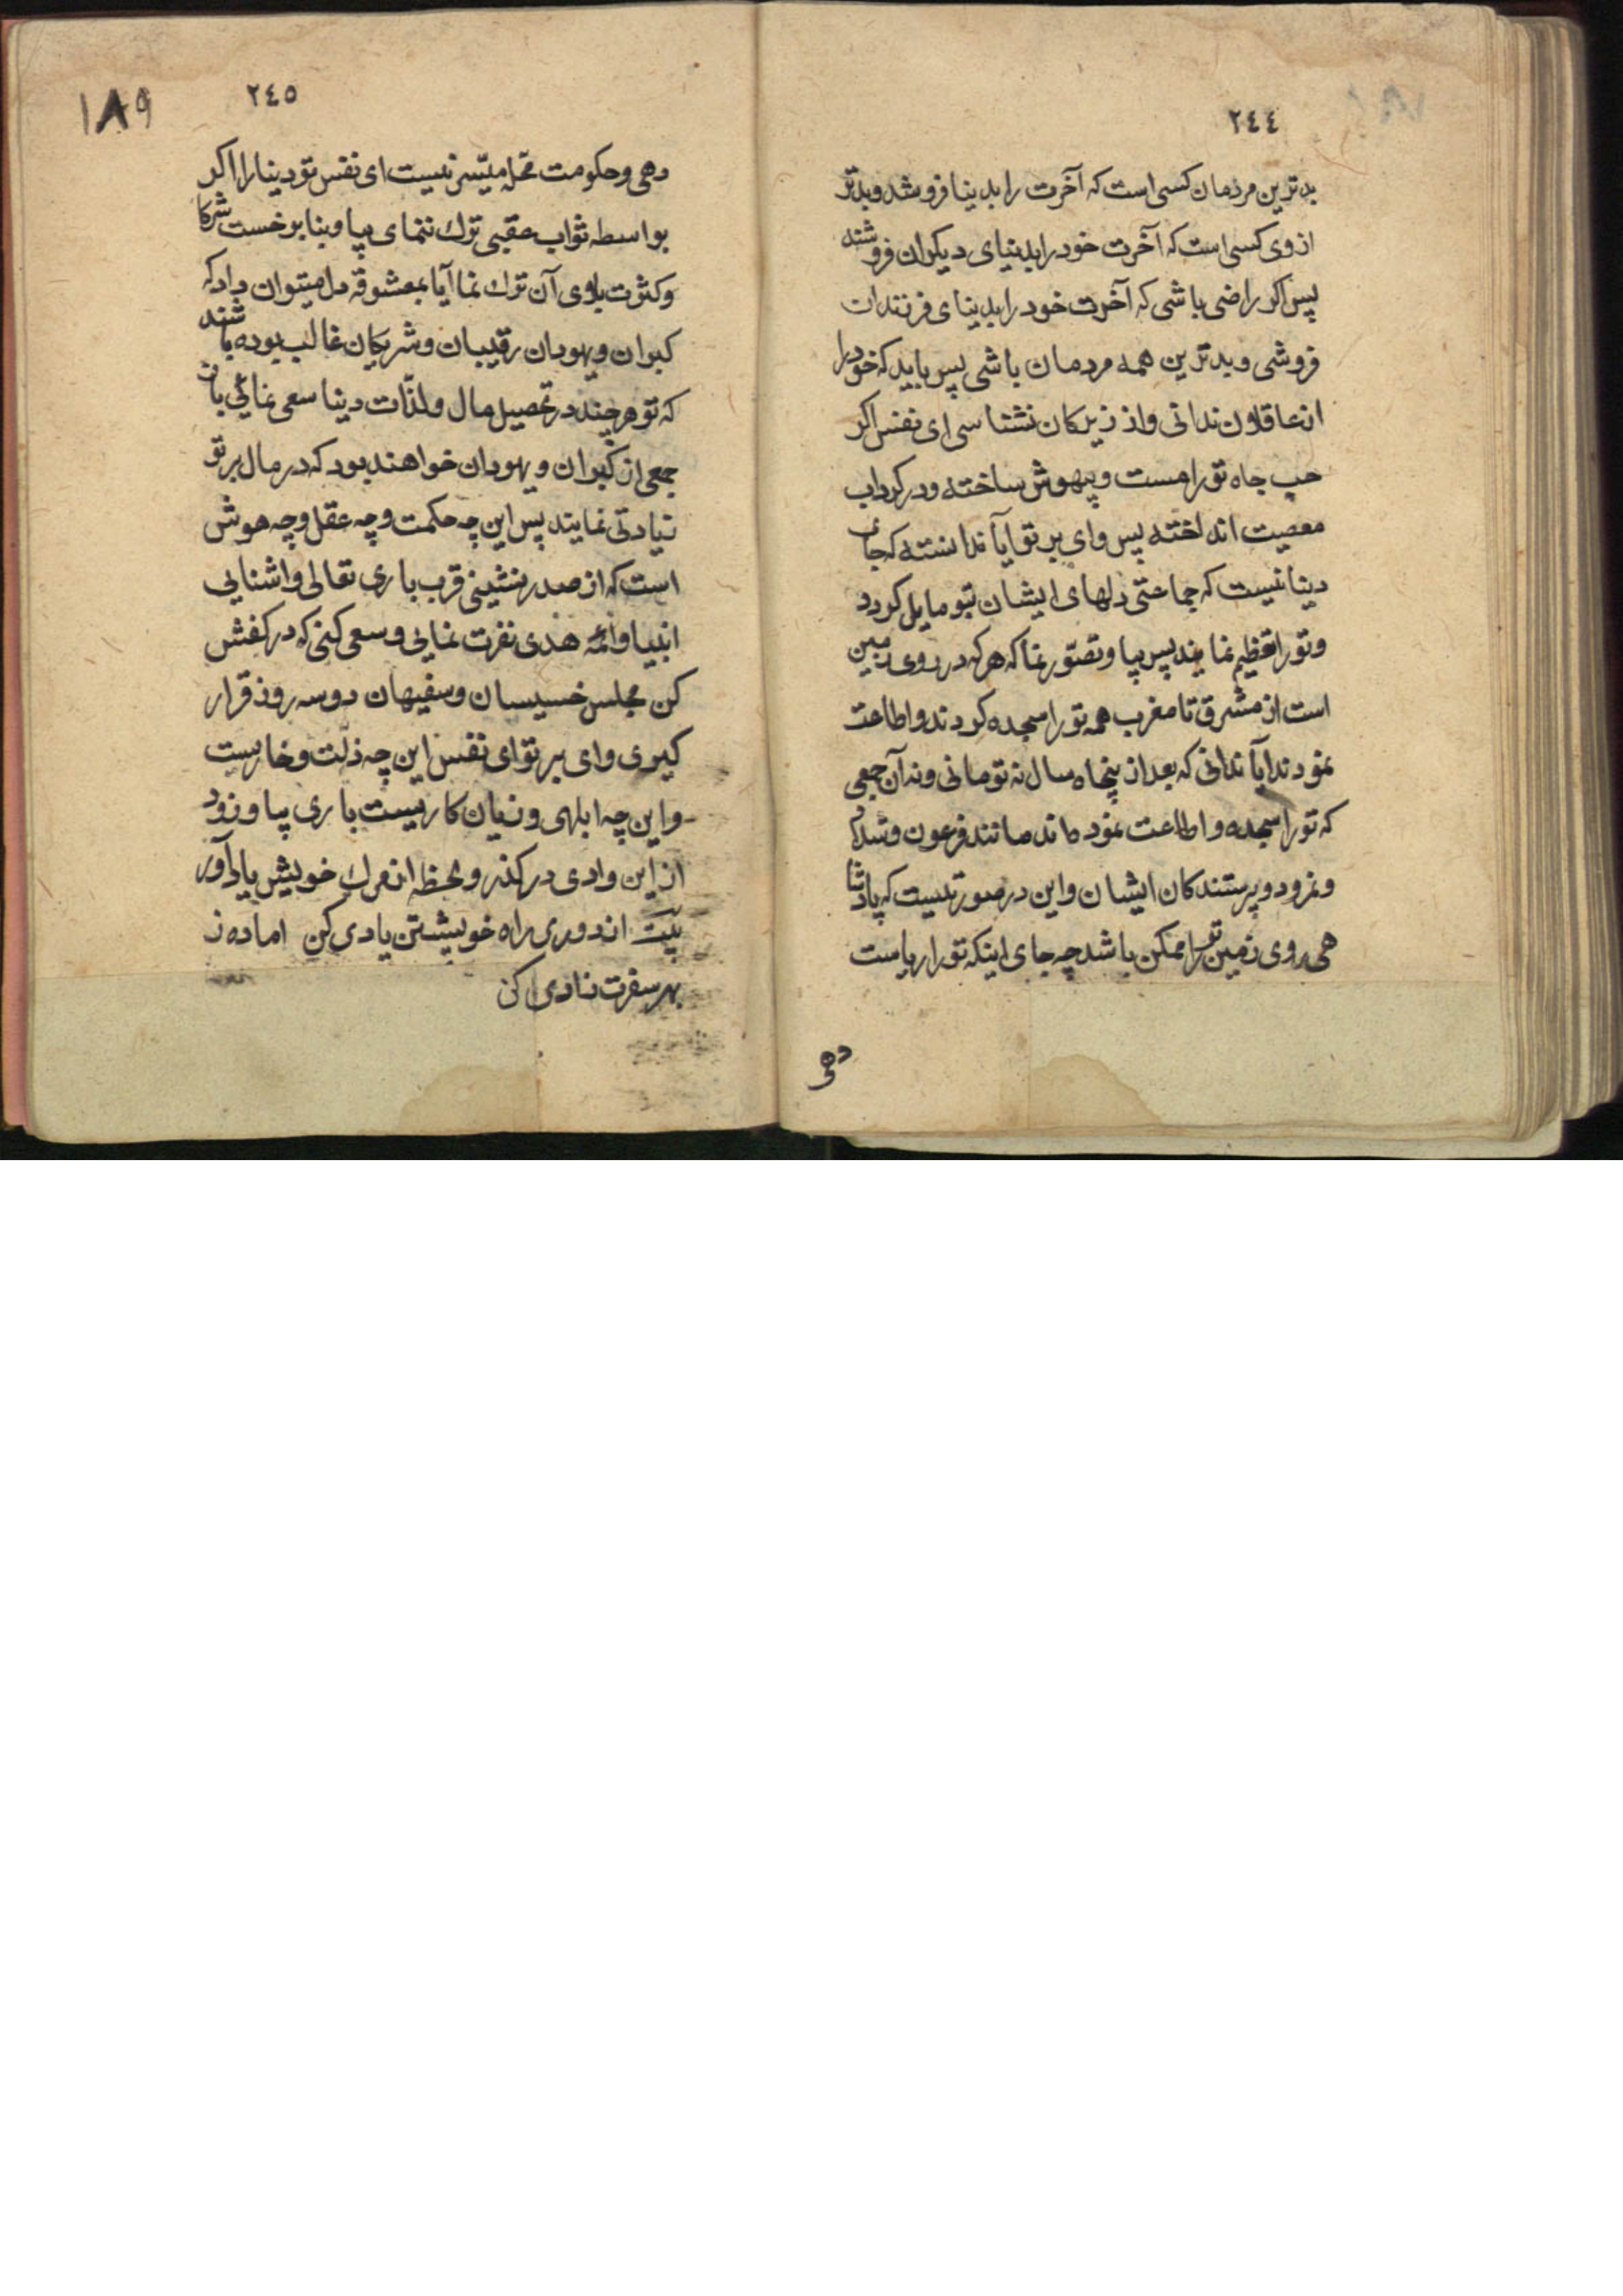 ٢٤٤
بدترین مردمان کسی است که آخرت را بدنیا فروشد و بدتر
از وی کسی است که آخرت خود را بدنیای دیکران فروشد
پس اکر راضی باشی که آخرت خود را بدنیای فرزندان
فروشی و بدترین همه مردمان باشی پس باید که خود را
از عاقلان ندانی و از زیرکان نشناسی ای نفس اکر
حب جاه تو را مست و بیهوش ساخته و در کرداب
معصیت انداخته پس وای بر تو ایا ندانسته که جای
دنیا نیست که جماعتی دلهای ایشان بتو مایل کردد
و تو را تعظیم نمایند پس بیا و تصوّر نما که هر که در روی زمین
است از مشرق تا مغرب همه تو را سجده کردند و اطاعت
نمودند ایا ندانی که بعد از پنجاه سال نه تو مانی و نه آن جمعی
که تو را سجده و اطاعت نموده اند مانند فرعون و شداد
و نمرود و پرستندکان ایشان و این در صورتیست که پادشا
هی روی زمین تو را ممکن باشد چه جای اینکه تو را ریاست
دهی
٢٤٥
١٨٩
دهی و حکومت محله میسّر نیست ای نفس تو دنیا را اکر
بواسطه ثواب عقبی ترک ننمای بیا و بنا بر خست شرکا
و کثرت بلوی آن ترک نما آیا بمعشوقه دل میتوان داد که
کبران و یهودان رقیبان و شریکان غالب بوده باشند
که تو هر چند در تحصیل مال و لذّات دنیا سعی نمائی باز
جمعی از کبران و یهودان خواهند بود که در مال بر تو
زیادتی نمایند پس این چه حکمت و چه عقل و چه هوش
است که از صدر نشینی قرب باری تعالی و اشنایی
انبیا و ائمه هدی نفرت نمایی و سعی کنی که در کفش
کن مجلس خسیسان و سفیهان دو سه روز قرار
کیری وای بر تو ای نفس این چه ذلّت و خاریست
و این چه ابلهی و زیان کاریست باری بیا و زود
از این وادی در کذر و لحظه از مرک خویش یاد آور
بیت از دوری راه خویشتن یادی کن اماده ز
بهر سفرت زادی کن